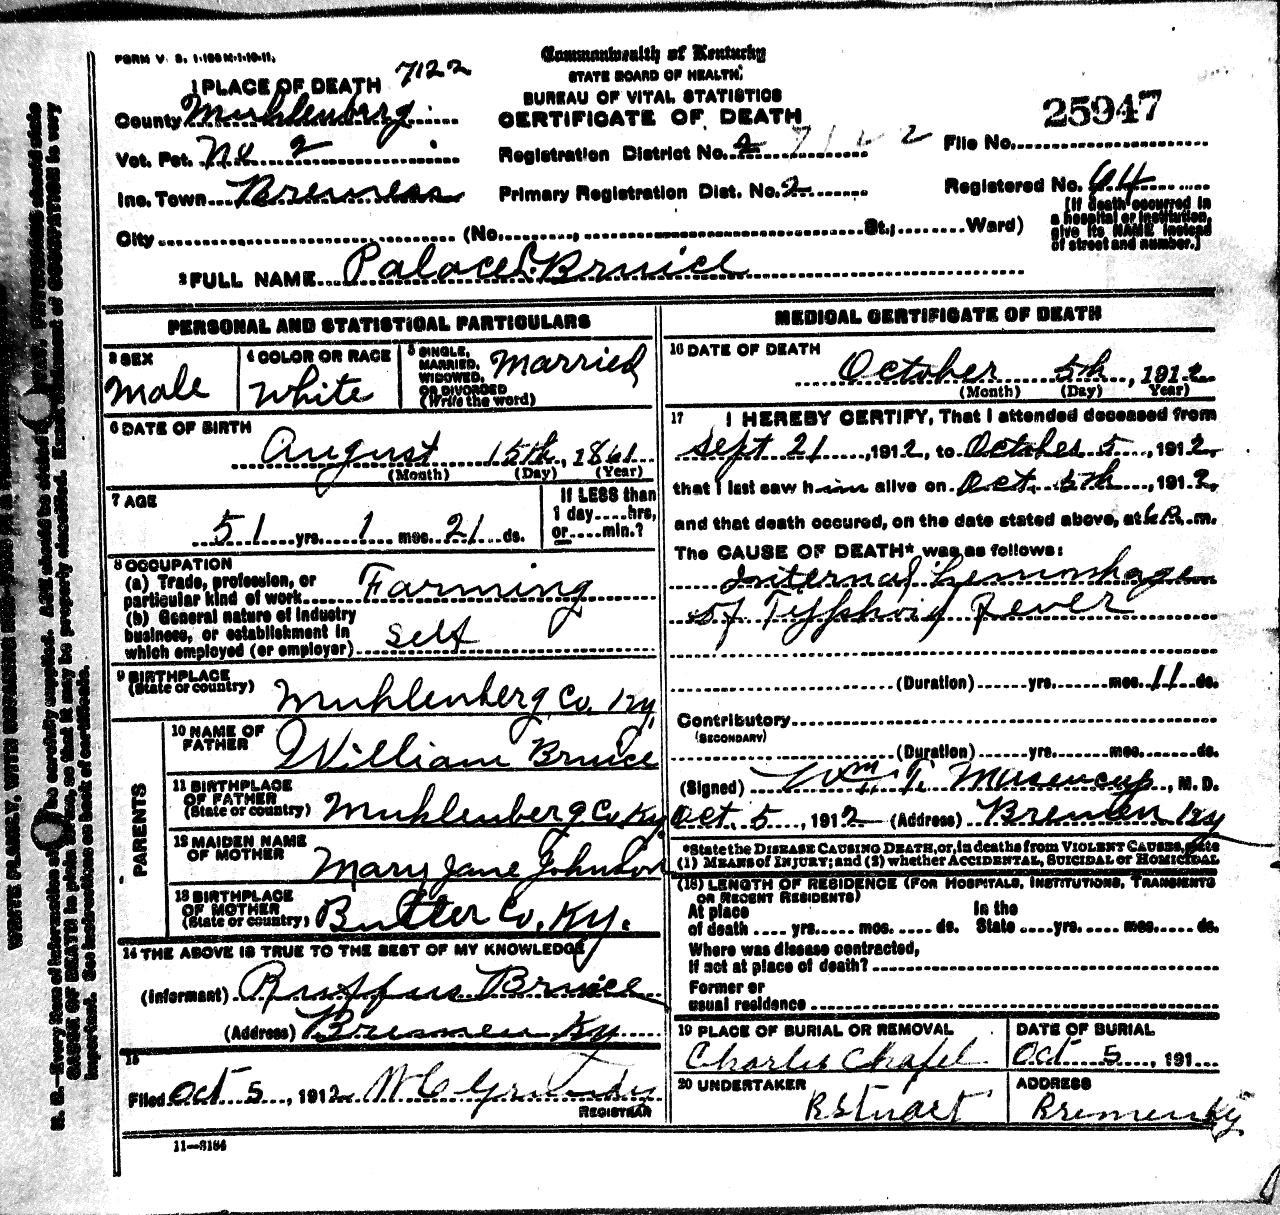 FORM V. S. 1-100M-1-10-11.
Commonwealth of Kentucky
STATE BOARD OF HEALTH.
BUREAU OF VITAL STATISTICS
CERTIFICATE OF DEATH
1 PLACE OF DEATH 7122
County Muhlenberg
Vot. Pct. No 2
Registration District No. 2 7122
File No. 25947
Inc. Town Bremen
Primary Registration Dist. No. 2
Registered No. 64
City (No. , St.; Ward)
[If death occurred in
a hospital or institution,
give its NAME instead
of street and number.]
2 FULL NAME Palace Bruice
PERSONAL AND STATISTICAL PARTICULARS
3 SEX
Male
4 COLOR OR RACE
White
5 SINGLE,
MARRIED,
WIDOWED,
OR DIVORCED
(Write the word)
Married
6 DATE OF BIRTH
August 15th, 1861
(Month) (Day) (Year)
7 AGE
51 yrs. 1 mos. 21 ds.
If LESS than
1 day....hrs,
or....min.?
8 OCCUPATION
(a) Trade, profession, or
particular kind of work Farming
(b) General nature of industry
business, or establishment in
which employed (or employer) Self
9 BIRTHPLACE
(State or country) Muhlenberg Co, Ky.
PARENTS
10 NAME OF
FATHER William Bruice
11 BIRTHPLACE
OF FATHER
(State or country) Muhlenberg Co, Ky
12 MAIDEN NAME
OF MOTHER Mary Jane Johnson
13 BIRTHPLACE
OF MOTHER
(State or country) Butler Co, Ky.
14 THE ABOVE IS TRUE TO THE BEST OF MY KNOWLEDGE
(Informant) Ruffus Bruice
(Address) Bremen Ky
15
Filed Oct 5, 1912 W C
REGISTRAR
11-3184
MEDICAL CERTIFICATE OF DEATH
16 DATE OF DEATH
October 5th, 1912
(Month) (Day) (Year)
17 I HEREBY CERTIFY, That I attended deceased from
Sept 21, 1912, to October 5, 1912,
that I last saw him alive on Oct. 5th, 1912,
and that death occured, on the date stated above, at 6 A. m.
The CAUSE OF DEATH* was as follows:
Internal hemorrhage
of Typhoid fever
(Duration) yrs. mos. 11 ds.
Contributory
(SECONDARY)
(Duration) yrs. mos. ds.
(Signed) Wm T., M. D.
Oct. 5, 1912 (Address) Bremen Ky
*State the DISEASE CAUSING DEATH, or, in deaths from VIOLENT CAUSES, state
(1) MEANS OF INJURY; and (2) whether ACCIDENTAL, SUICIDAL or HOMICIDAL
(18) LENGTH OF RESIDENCE (FOR HOSPITALS, INSTITUTIONS, TRANSIENTS
OR RECENT RESIDENTS)
At place In the
of death .... yrs. .... mos. .... ds. State ....yrs. .... mos. .... ds.
Where was disease contracted,
if not at place of death?
Former or
usual residence
19 PLACE OF BURIAL OR REMOVAL
Charles Chapel
DATE OF BURIAL
Oct 5, 191
20 UNDERTAKER
R Stuart
ADDRESS
Bremen Ky